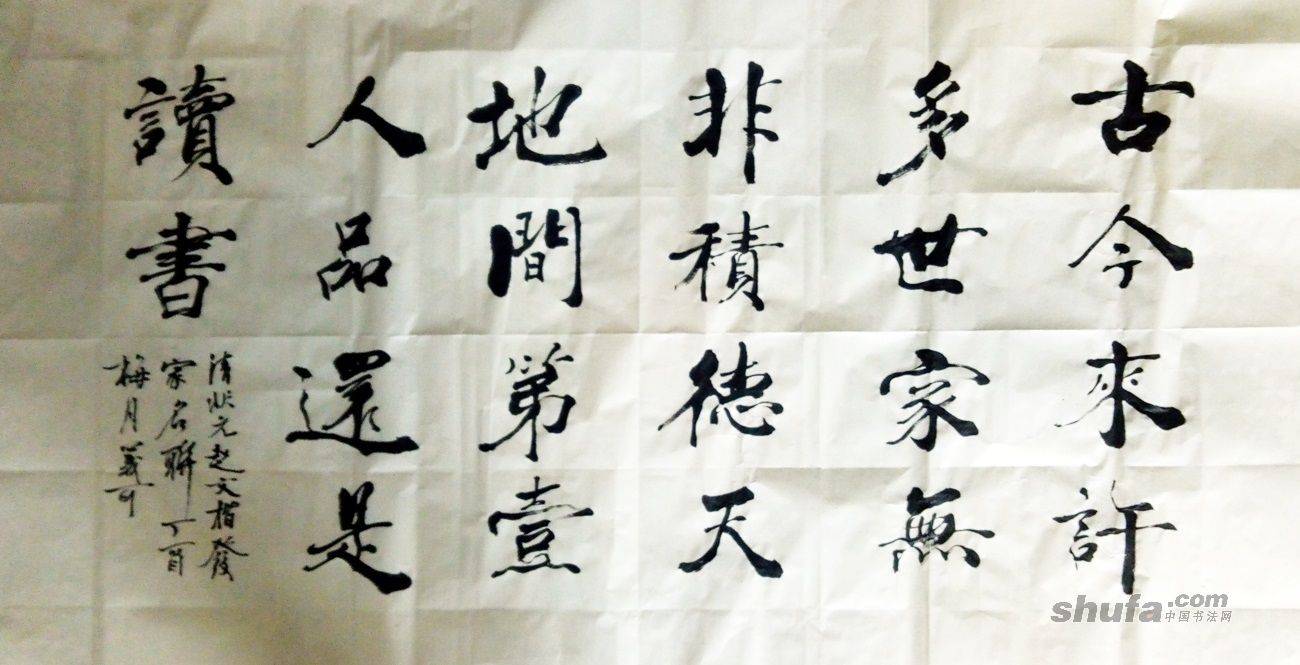 古今來許
多世家無
非積德天
地間第壹
人品還是
讀書
清狀元赵文楷發
家名聯 丁酉
梅月義可
shufa.com
中国书法网